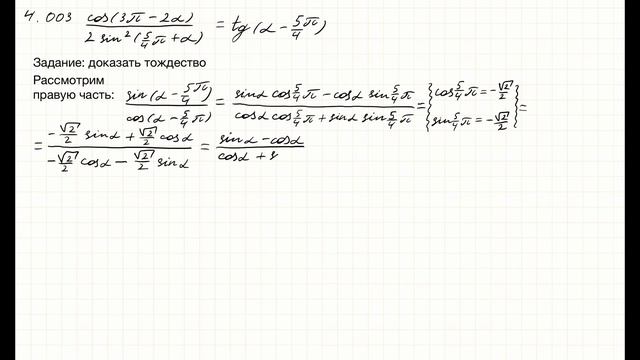 4.003 cos(3π-2α) / 2 sin²(5/4 π+α) = tg(α-5π/4)
Задание: доказать тождество
Рассмотрим
правую часть: sin(α-5π/4) / cos(α-5/4 π) = sinα cos 5/4 π - cosα sin 5/4 π / cosα cos 5/4 π + sinα sin 5/4 π = {cos 5/4 π = -√2/2 sin 5/4 π = -√2/2} =
= -√2/2 sinα + √2/2 cosα / -√2/2 cosα - √2/2 sinα = sinα - cosα / cosα + s